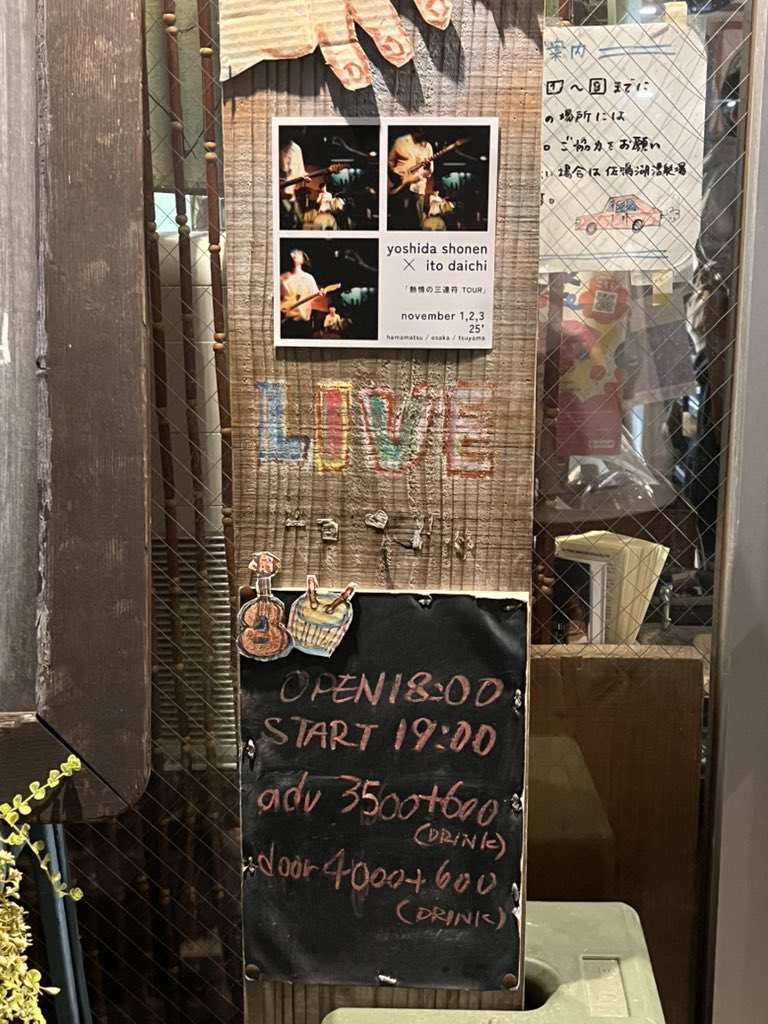 案内
1〜9までに
の場所には
。ご協力をお願い
い場合は佐鳴湖漕艇場
す。
yoshida shonen
× ito daichi
「熱情の三連符 TOUR」
november 1,2,3
25'
hamamatsu / osaka / tsuyama
LIVE
OPEN 18:00
START 19:00
adv 3500+600
(DRINK)
door 4000+600
(DRINK)